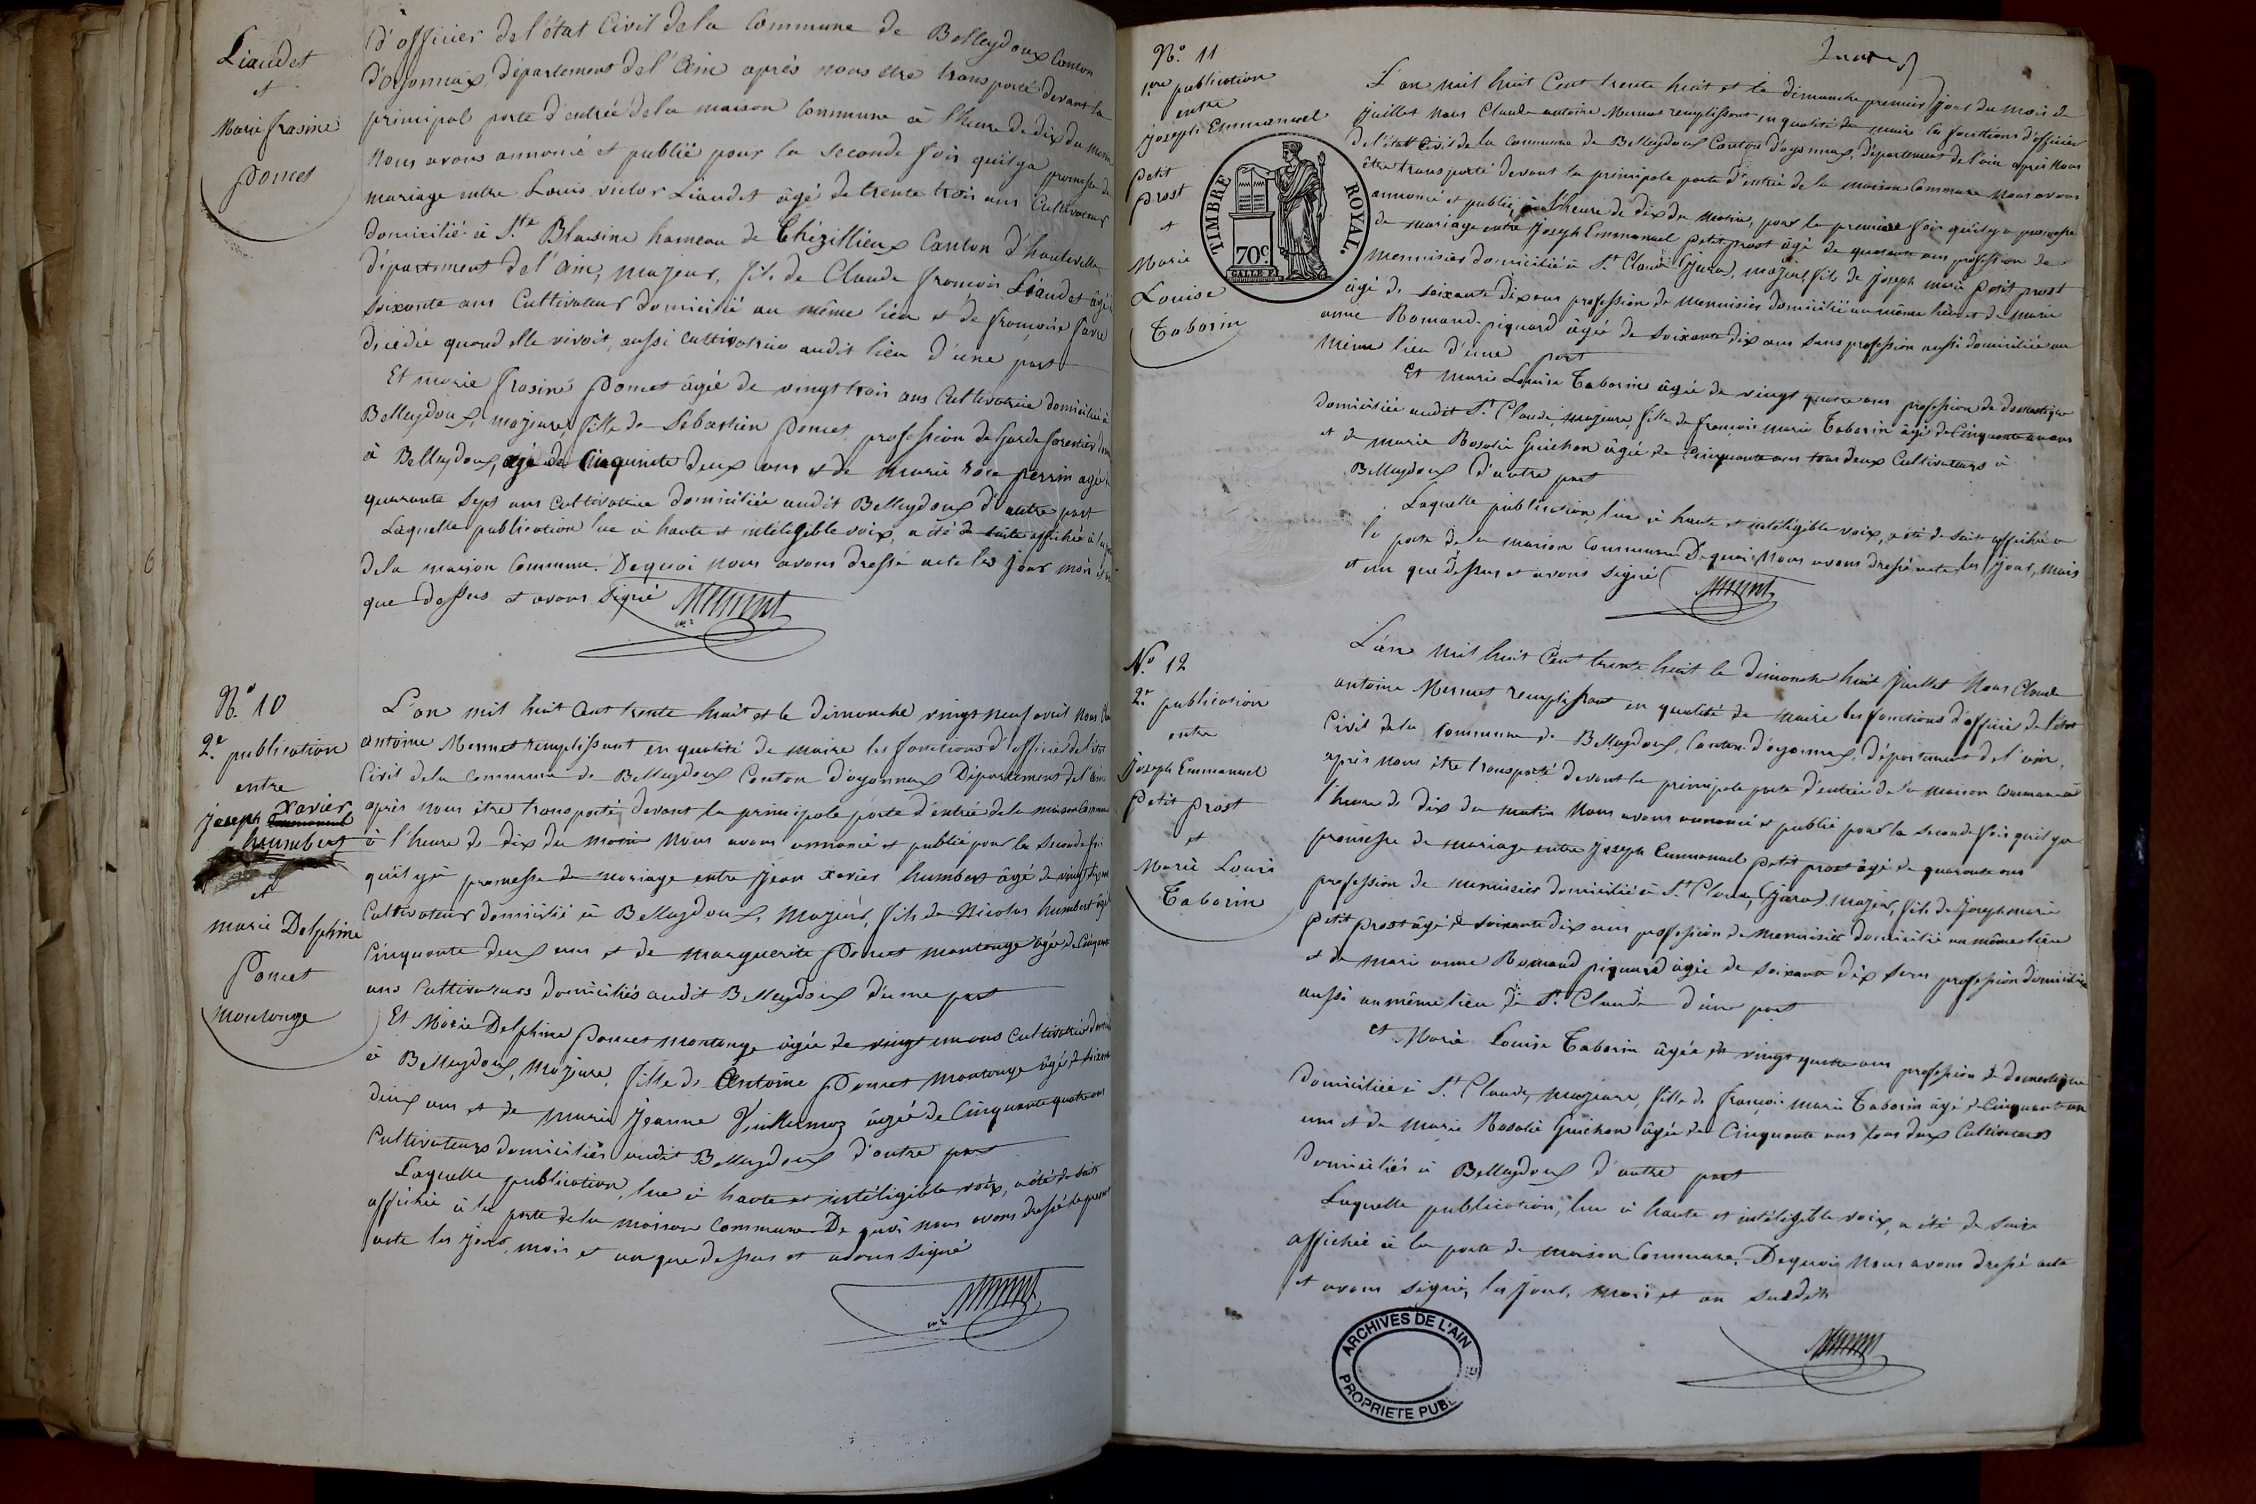 Liaudet
et
Marie frasine
poncet
d'officier de l'état Civil de la Commune de Belleydoux Canton
d'oyonnax, département de l'ain après nous etre transporté devant la
principal porte d'entrée de la maison Commune à l'heure de dix du matin
Nous avons annoncé et publié pour la seconde fois quil y a promesse de
mariage entre Louis victor Liaudet âgé de trente trois ans Cultivateur
domicilié à Ste Blaisine hameau de Thézillieux Canton d'hauteville
département de l'ain, majeur, fils de Claude françois Liaudet âgé
soixante ans Cultivateur domicilié au même lieu et de françoise favre
décédée quand elle vivoit, aussi cultivatrice audit lieu d'une part
Et marie frasine poncet âgée de vingt trois ans Cultivatrice domiciliée à
Belleydoux, majeure, fille de Sebastien poncet profession de garde forestier
à Belleydoux, âgé de Cinquante deux ans et de marie rose perrin agée
quarante sept ans cultivatrice domiciliée audit Belleydoux d'autre part
Laquelle publication lue à haute et intéligible voix, a été de suite affichée à la
de la maison Commune. De quoi nous avons dressé acte les jour mois
que dessus et avons signé
N° 10
2e publication
entre
joseph xavier
humbert
et
marie Delphine
Poncet
montange
L'an mil huit Cent trente huit et le dimanche vingt neuf avril Nous
antoine Mermet remplissant en qualité de maire les fonctions d'officier de l'état
Civil de la Commune de Belleydoux Canton d'oyonnax Département de l'ain
après nous être transporté devant la principale porte d'entrée de la maison Commune
à l'heure de dix du matin Nous avons annoncé et publié pour la seconde fois
quil y a promesse de mariage entre jean xavier humbert âgé de vingt
Cultivateur domicilié à Belleydoux, majeur, fils de Nicolas humbert âgé
Cinquante deux ans et de marguerite Poncet montange âgée de Cinquante
ans Cultivateurs domiciliés audit Belleydoux d'une part
Et Marie Delphine Poncet montange âgée de vingt un ans Cultivatrice
à Belleydoux, majeure, fille de Antoine Poncet montange âgé de soixante
deux ans et de marie jeanne Vuillermoz âgée de Cinquante quatre ans
Cultivateurs domiciliés audit Belleydoux d'autre part
Laquelle publication, lue à haute et intéligible voix, a été de suite
affichée à la porte de la maison Commune De quoi nous avons dressé le présent
acte les jour, mois et an que dessus et avons signé
N° 11
1ère publication
entre
joseph Emmanuel
petit
prost
et
Marie
Louise
Taborin
TIMBRE ROYAL.
70c
L'an mil huit Cent trente huit et le dimanche premier jour du mois de
juillet Nous Claude antoine Mermet remplissant en qualité de maire les fonctions d'officier
de l'état Civil de la Commune de Belleydoux Canton d'oyonnax, département de l'ain après Nous
être transporté devant la principale porte d'entrée de la maison Commune Nous avons
annoncé et publié, à l'heure de dix du matin, pour la première fois quil y a promesse
de mariage entre joseph Emmanuel petit prost âgé de quarante ans profession de
Menuisier domicilié à St Claude (jura), majeur, fils de joseph marie petit prost
âgé de soixante dix ans profession de Menuisier domicilié au même lieu et de marie
anne Romand-piquard âgée de soixante dix ans sans profession aussi domiciliée au
même lieu d'une part
Et marie Louise Taborin âgée de vingt quatre ans profession de domestique
domiciliée audit St Claude, majeure, fille de françois marie Taborin âgé de Cinquante un ans
et de marie Rosalie Guichon âgée de Cinquante ans tous deux Cultivateurs à
Belleydoux d'autre part
Laquelle publication, lue à haute et intéligible voix, a été de suite affichée à
la porte de la maison Commune De quoi Nous avons dressé acte les jour, mois
et an que dessus et avons signé
N° 12
2e publication
entre
joseph Emmanuel
Petit prost
et
Marie Louise
Taborin
L'an mil huit Cent trente huit le dimanche huit juillet Nous Claude
antoine Mermet remplissant en qualité de maire les fonctions d'officier de l'état
Civil de la Commune de Belleydoux, Canton d'oyonnax, département de l'ain,
après Nous être transporté devant la principale porte d'entrée de la maison Commune à
l'heure de dix du matin Nous avons annoncé et publié pour la seconde fois quil y a
promesse de mariage entre joseph Emmanuel petit prost âgé de quarante ans
profession de menuisier domicilié à St Claude, (jura) majeur, fils de joseph marie
petit prost âgé de soixante dix ans profession de Menuisier domicilié au même lieu
et de marie anne Romand piquard âgée de soixante dix sans profession domiciliée
aussi au même lieu de St Claude d'une part
et Marie Louise Taborin âgée de vingt quatre ans profession de domestique
domiciliée à St Claude, majeure, fille de françois marie Taborin âgé de Cinquante un
ans et de Marie Rosalie Guichon âgée de Cinquante ans tous deux Cultivateurs
domiciliés à Belleydoux d'autre part
Laquelle publication, lue à haute et intéligible voix, a été de suite
affichée à la porte de maison Commune. De quoi Nous avons dressé acte
et avons signé, les jour, mois et an susdits
ARCHIVES DE L'AIN
PROPRIETE PUBL